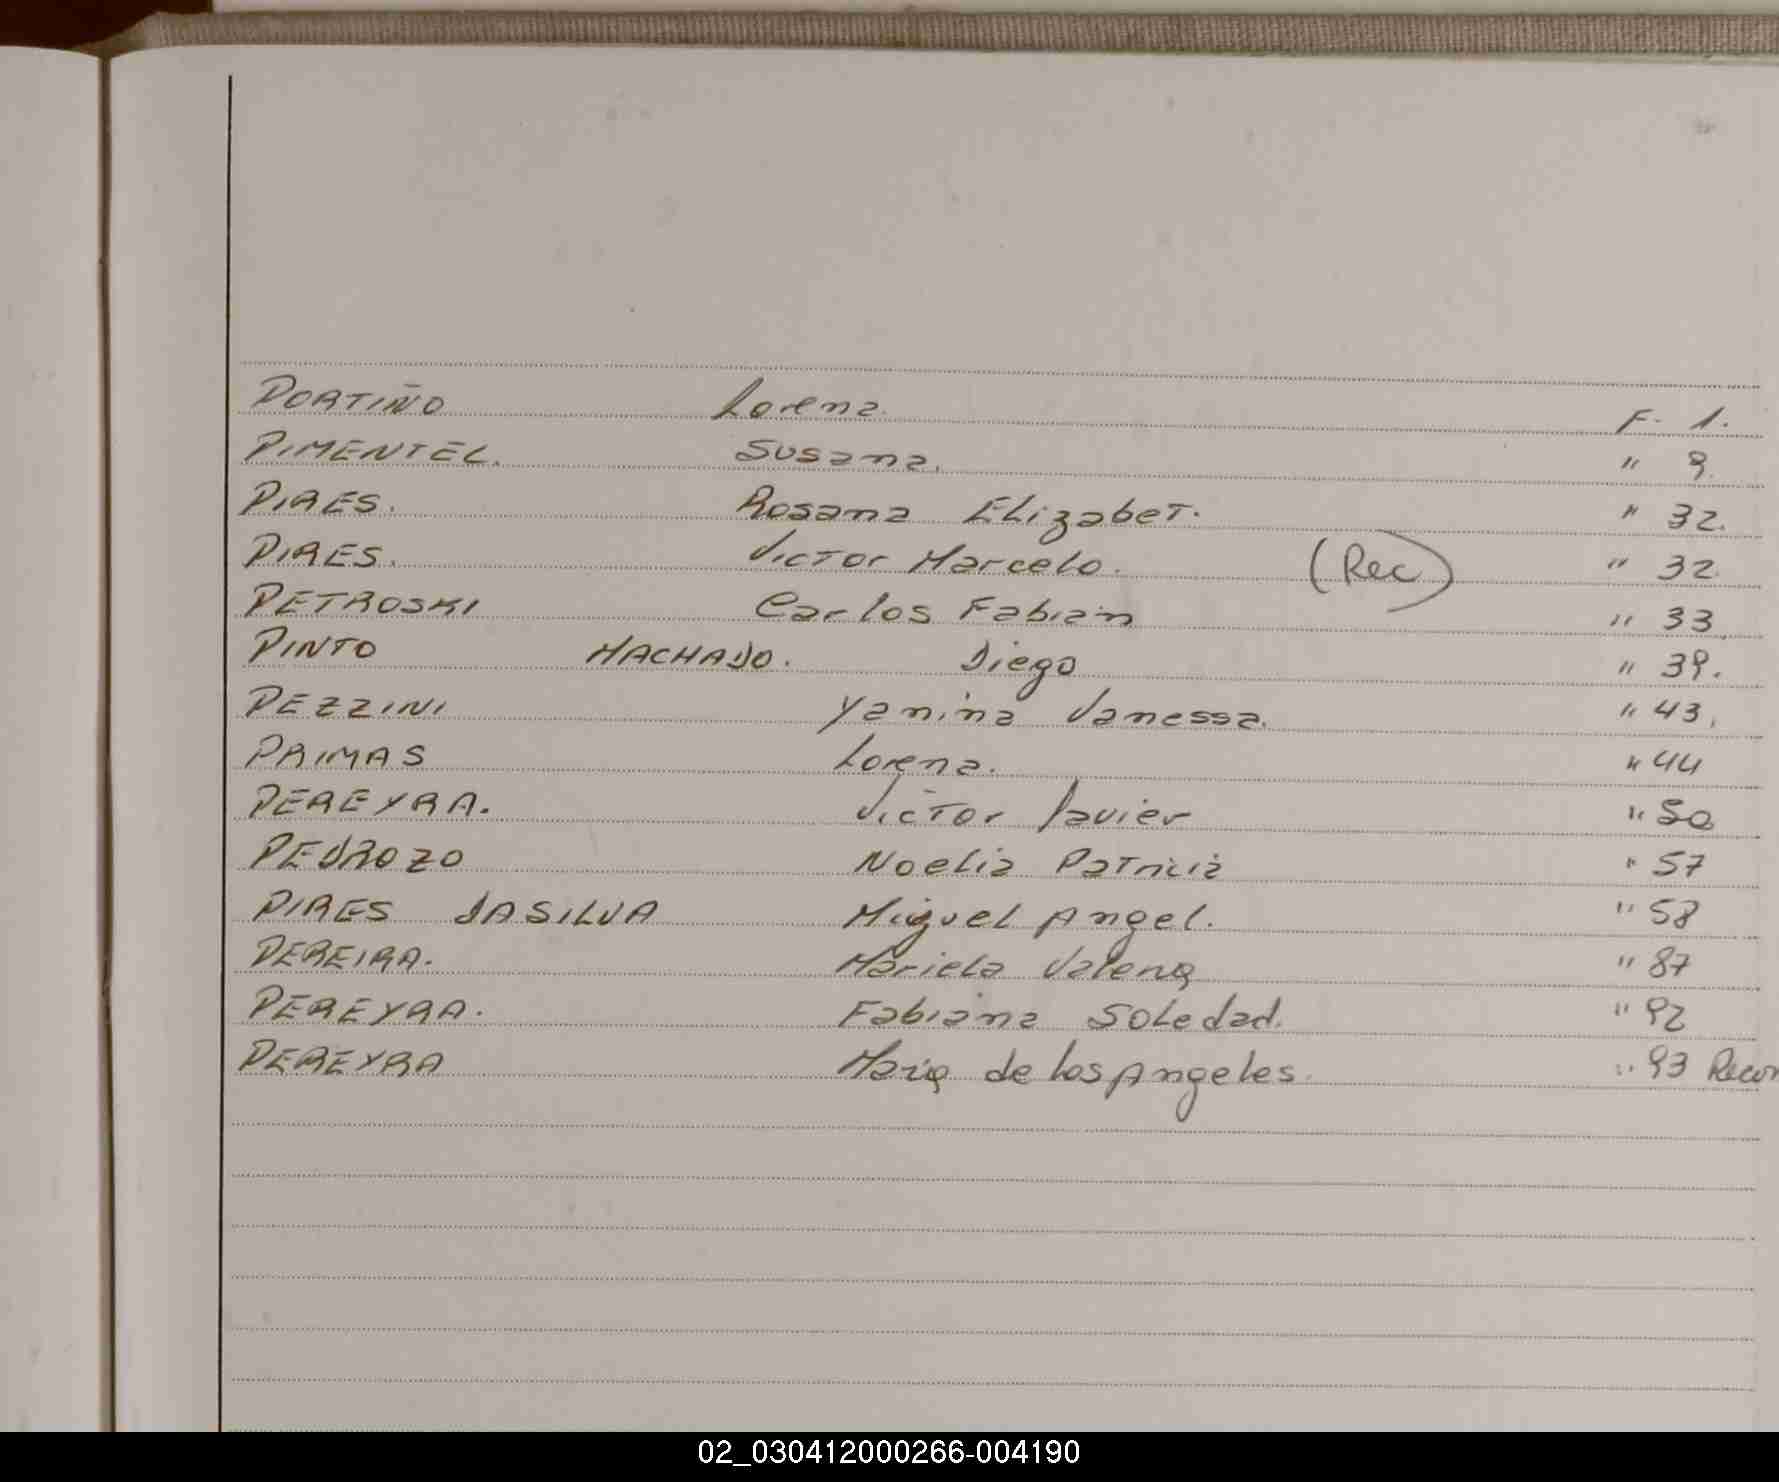 PORTIÑO Lorena. F. 1.
PIMENTEL. Susana. " 9.
PIRES. Rosana Elizabet. " 32.
PIRES. Victor Marcelo. (Rec) " 32.
PETROSKI Carlos Fabian " 33
PINTO MACHADO. Diego " 39.
PEZZINI Yanina Vanessa. " 43.
PRIMAS Lorena. " 44
PEREYRA. Victor Javier " 50
PEDROZO Noelia Patricia " 57
PIRES DASILVA Miguel Angel. " 58
PEREIRA. Mariela " 87
PEREYRA. Fabiana Soledad. " 92
PEREYRA Maria de los Angeles. " 93 Recon
02_030412000266-004190